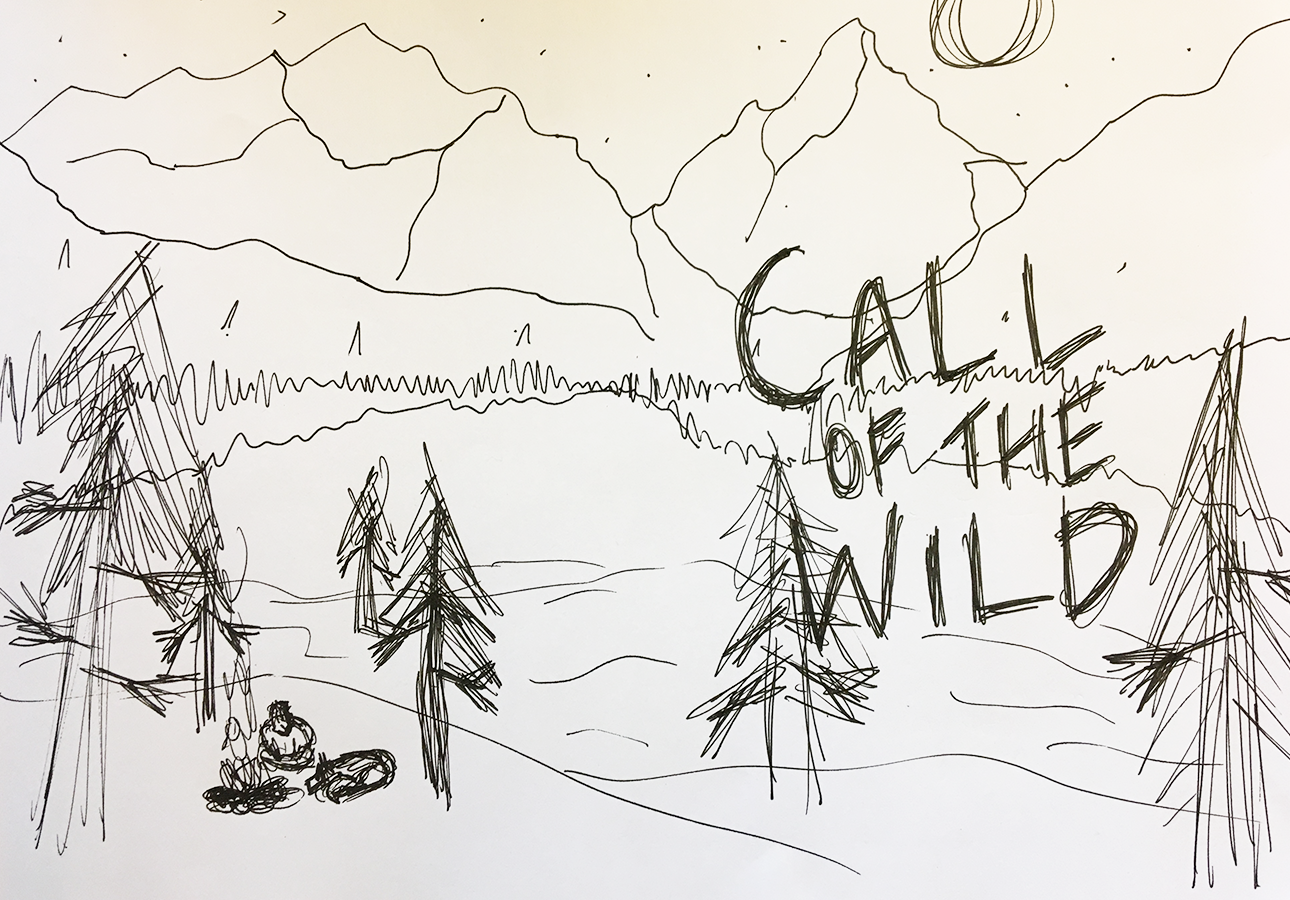 CALL
OF THE
WILD